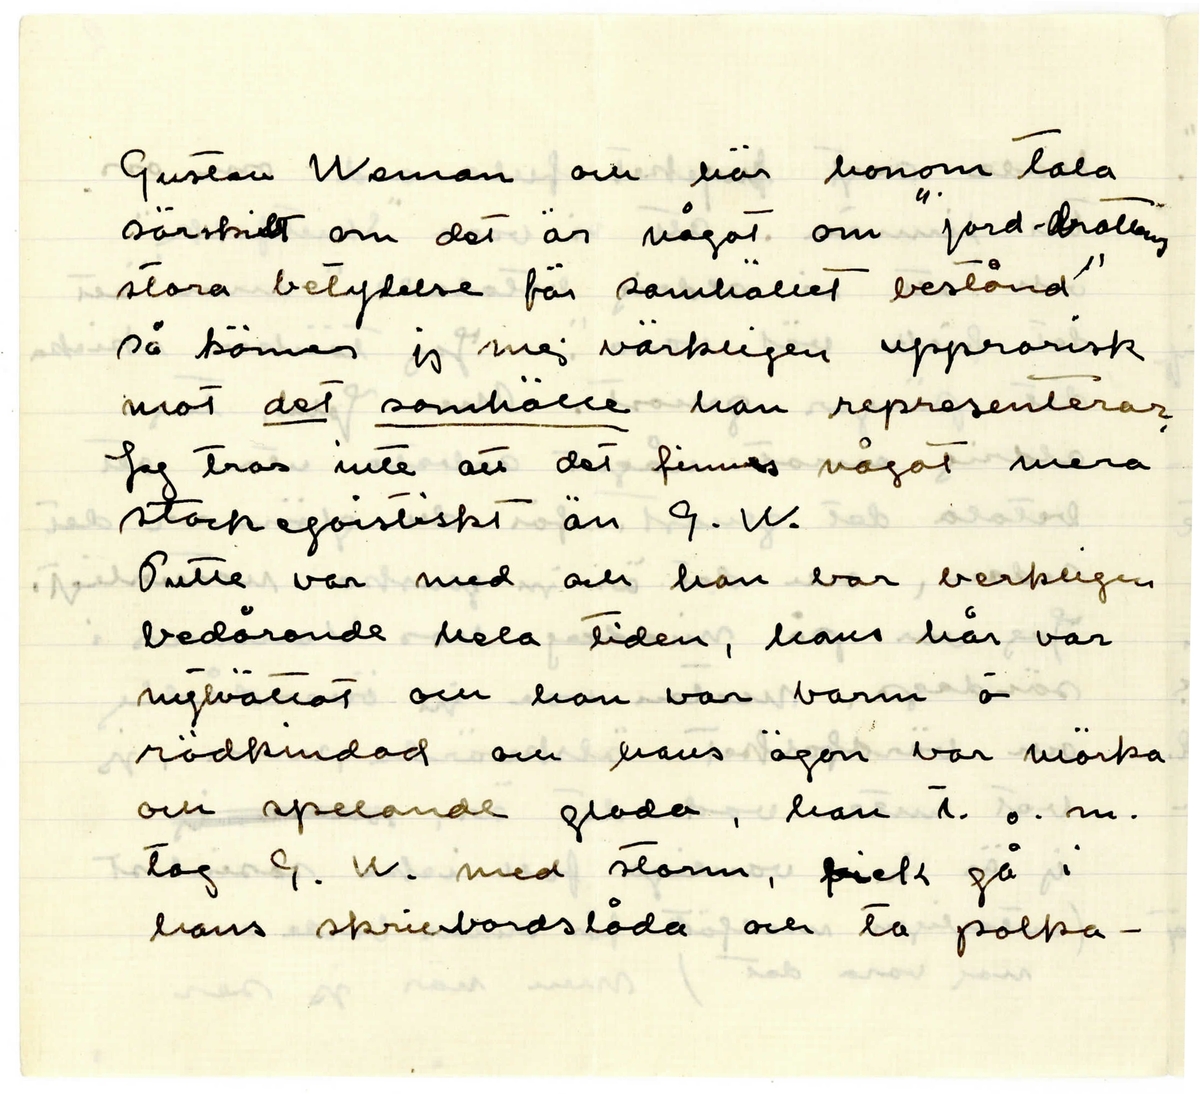 Gustav Weman och hör honom tala
särskilt om det är något om "jord-drotten
stora betydelse för samhället bestånd"
så känner jg mej värkligen upprorisk
mot det samhälle han representerar.
Jag tror inte att det finnes något mera
stockegoistiskt än G. W.
Putte var med och han var verkligen
bedårande hela tiden, hans hår var
nytvättat och han var varm o
rödkindad och hans ögon var mörka
och spelande glada, han t. o. m.
tog G. W. med storm, fick gå i
hans skrivbordslåda och ta polka-